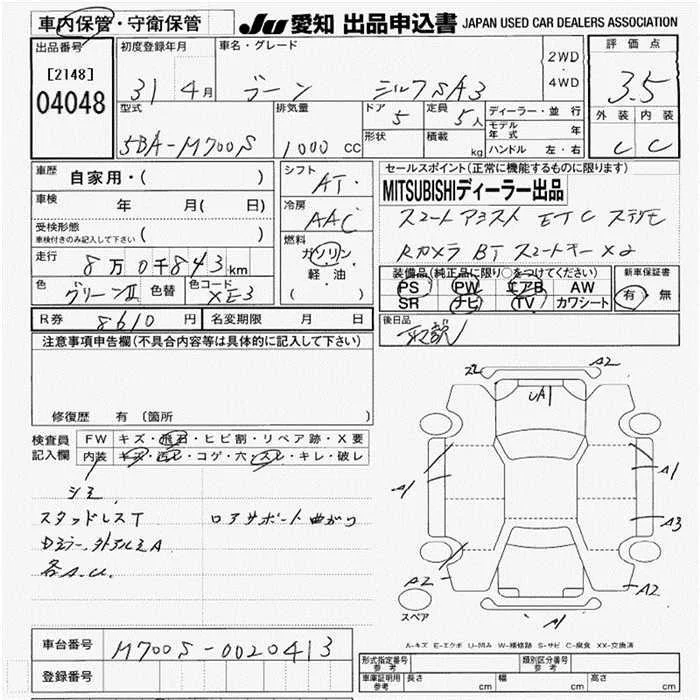 車内保管・守衛保管
JU 愛知 出品申込書 JAPAN USED CAR DEALERS ASSOCIATION
出品番号
[2148]
04048
初度登録年月
31 4月
車名・グレード
ブーン シルクSA3
2WD
・
4WD
評価点
3.5
外装 内装
C C
型式
5BA-M700S
排気量
1000 CC
ドア
5
定員
5人
形状
積載
kg
ディーラー・並行
モデル年式 年
ハンドル 左・右
車歴
自家用・( )
車検
年 月( 日)
受検形態
車検付きのみ記入して下さい ( )
走行
8万0千843km
色
グリーンII
色替
色コード
XE3
シフト
AT
冷房
AAC
燃料
ガソリン
軽油
( )
セールスポイント(正常に機能するものに限ります)
MITSUBISHIディーラー出品
スマートアシスト ETC ステリモ
Rカメラ BT スマートキーx2
装備品(純正品に限り○をつけてください)
PS PW エアB AW
SR ナビ TV カワシート
新車保証書
有・無
R券 8610 円
名変期限 月 日
後日品
取説
注意事項申告欄(不具合内容等は具体的に記入して下さい)
修復歴 有 〔箇所 〕
検査員
記入欄
FW キズ・飛石・ヒビ割・リペア跡・X要
内装 キズ・汚レ・コゲ・穴・スレ・キレ・破レ
シミ
スタッドレスT ロアサポート曲がり
Dミラー、外アルミA
各A.U.
A2
UA1
A1
A1
A3
A2
A2
A1
スペア
A-キズ E-エクボ U-凹み W-補修跡 S-サビ C-腐食 XX-交換済
車台番号
M700S-0020413
登録番号
形式指定番号
参考
類別区分番号
参考
車庫証明用
参考
長さ cm 幅 cm 高さ cm